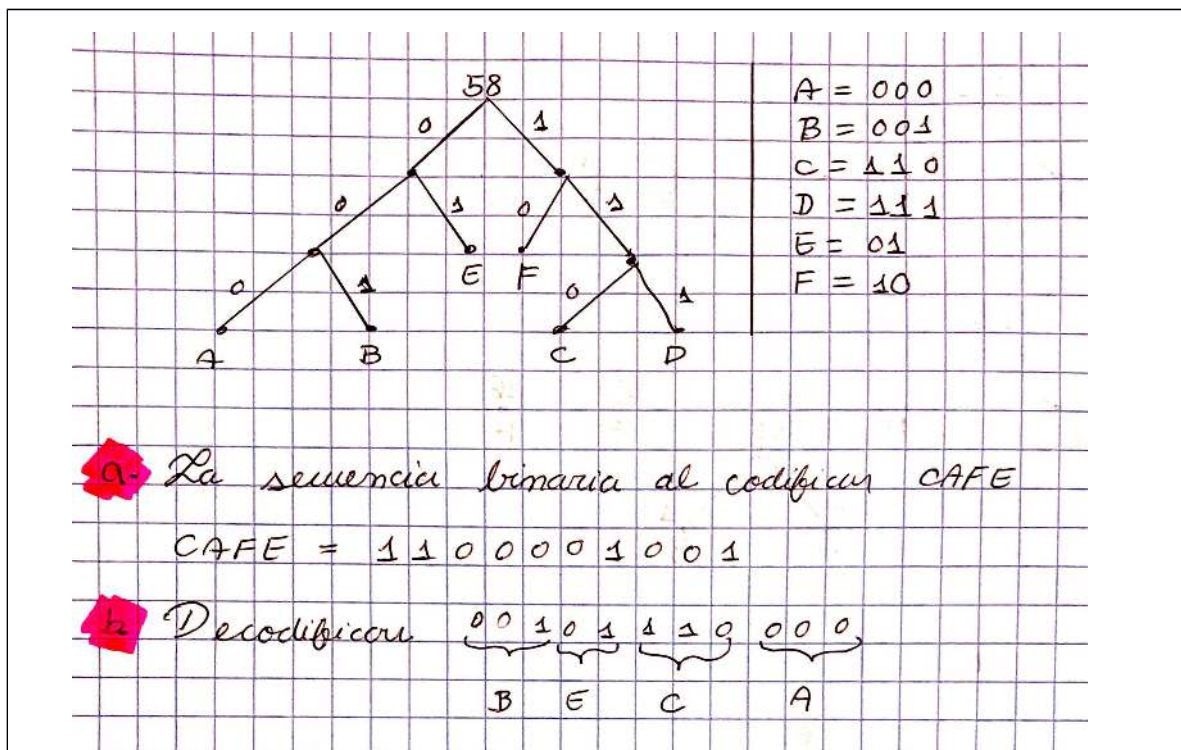 58
0 1
0 1 0 1
0 1 E F 0 1
A B C D
A = 000
B = 001
C = 110
D = 111
E = 01
F = 10
a- La secuencia binaria al codificar CAFE
CAFE = 1 1 0 0 0 0 1 0 0 1
b Decodificar 0 0 1 0 1 1 1 0 0 0 0
B E C A